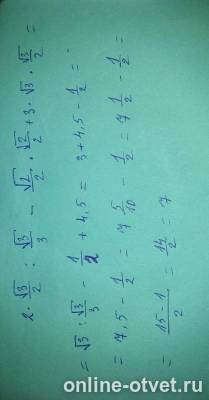 2·√3/2 : √3/3 − √2/2 · √2/2 + 3·√3·√3/2 =
= √3 : √3/3 − 1/2 + 4,5 = 3 + 4,5 − 1/2 =
= 7,5 − 1/2 = 7 5/10 − 1/2 = 7 1/2 − 1/2 =
= 15−1/2 = 14/2 = 7
online-otvet.ru